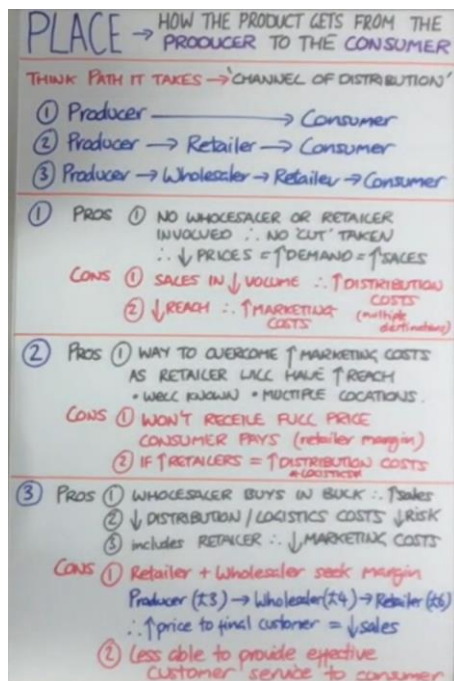 PLACE → HOW THE PRODUCT GETS FROM THE
PRODUCER TO THE CONSUMER
THINK PATH IT TAKES → 'CHANNEL OF DISTRIBUTION'
① Producer → Consumer
② Producer → Retailer → Consumer
③ Producer → Wholesaler → Retailer → Consumer
① PROS ① NO WHOLESALER OR RETAILER
INVOLVED ∴ NO 'CUT' TAKEN
∴ ↓ PRICES = ↑ DEMAND = ↑ SALES
CONS ① SALES IN ↓ VOLUME ∴ ↑ DISTRIBUTION
COSTS
② ↓ REACH ∴ ↑ MARKETING (multiple
COSTS destinations)
② PROS ① WAY TO OVERCOME ↑ MARKETING COSTS
AS RETAILER WILL HAVE ↑ REACH
• WELL KNOWN • MULTIPLE LOCATIONS.
CONS ① WON'T RECEIVE FULL PRICE
CONSUMER PAYS (retailer margin)
② IF ↑ RETAILERS = ↑ DISTRIBUTION COSTS
+ LOGISTICS
③ PROS ① WHOLESALER BUYS IN BULK ∴ ↑ sales
② ↓ DISTRIBUTION / LOGISTICS COSTS ↓ RISK
③ includes RETAILER ∴ ↓ MARKETING COSTS
CONS ① Retailer + Wholesaler seek margin
Producer (£3) → Wholesaler (£4) → Retailer (£6)
∴ ↑ price to final customer = ↓ sales
② Less able to provide effective
customer service to consumer